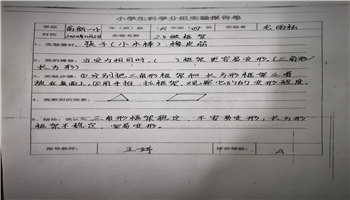 小学生科学分组实验报告单
学校 高新一小
实验名称 2.5做框架
1、实验器材: 筷子(小木棒) 橡皮筋
2、我的猜想: 当受力相同时,( )框架更容易变形。(三角形/
长方形)
3、实验步骤: ①分别把三角形框架和长方形框架立着
放在桌面上,②用手推、拉框架,观察它们的变形程度。
4、观察到的现象:
5、结论: 我认为三角形框架稳定,不容易变形;长方形
框架不稳定,容易变形。
指导教师: 王一婷
评价等级: A